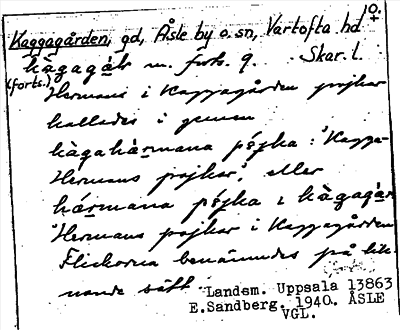 Kaggagården, gd, Åsle by o. sn, Vartofta hd
kàgagáɹ m. forts. 9. Skar. l.
(forts.)
Hermans i Kaggagården pojkar
kallades i gemen
kàgahàrmana pójka: "Kagga-
Hermans pojkar", eller
hàrmana pójka i kàgagáɹ
"Hermans pojkar i Kaggagården".
Flickorna benämndes på lik-
nande sätt.
Landsm. Uppsala 13863
E.Sandberg. 1940. ÅSLE
VGL.